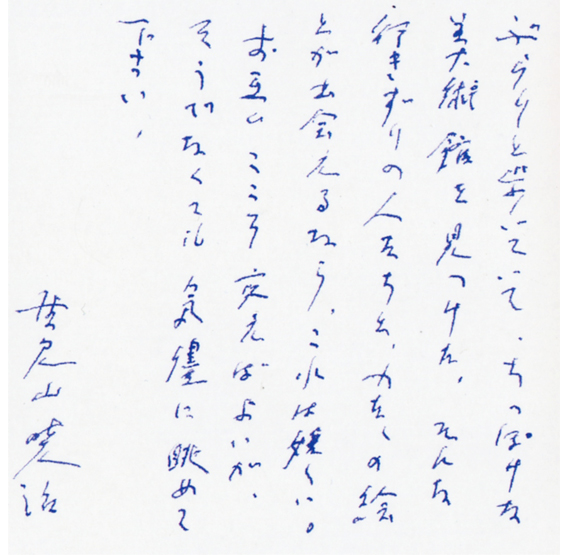 ぶらりと歩いていて、ちっぽけな
美術館を見つけた。そんな
行きずりの人たちと、わたくしの絵
とが出会えるなら、これは嬉しい。
お互いこころ交えばよいが、
そうでなくても氣軽に眺めて
下さい。
野見山暁治